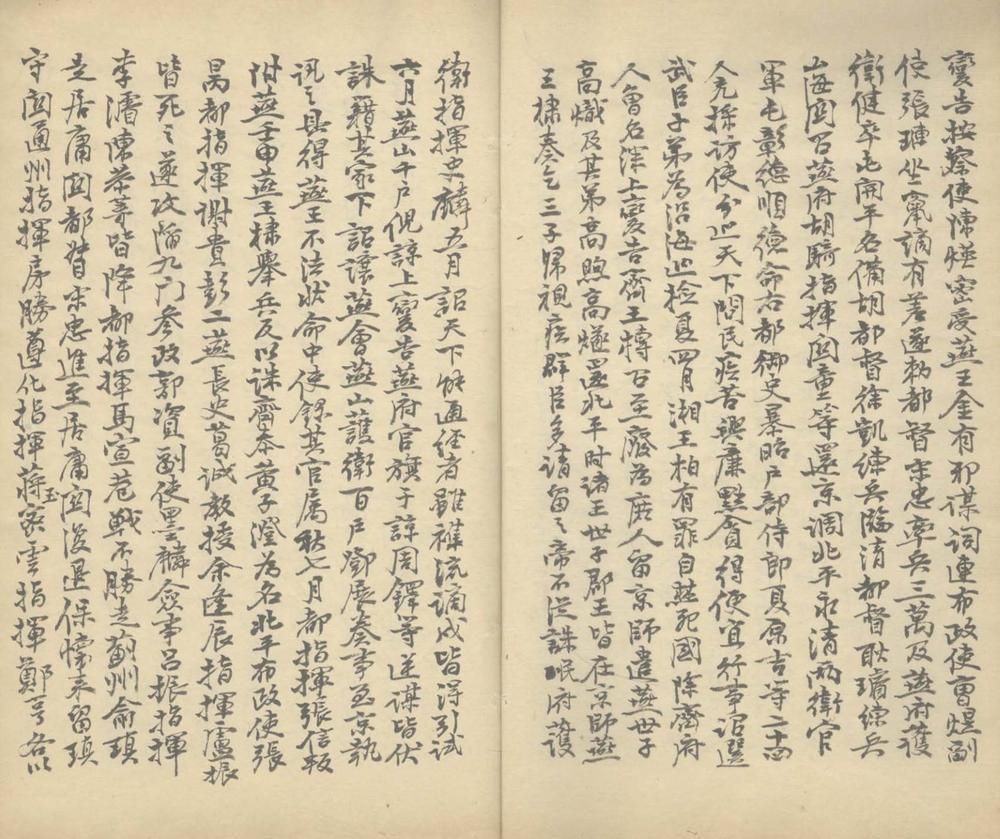 變告按察使陳煐密受燕王金有邪謀詞連布政使曹煜副
使張璉坐竄謫有差遂勑都督宋忠率兵三萬及燕府護
衛健卒屯開平名備胡都督徐凱練兵臨清都督耿瓛練兵
山海関召燕府胡騎指揮関童等還京調北平永清兩衛官
軍屯彰德順德命右都御史暴昭戶部侍郎夏原吉等二十四
人充採訪使分巡天下問民疾苦興廉黜貪得便宜行事詔選
武臣子弟為沿海巡檢夏四月湘王柏有罪自焚死國除齊府
人曾名深上變告齊王榑召至廢為庶人留京師遣燕世子
高熾及其弟高煦高燧還北平时諸王世子郡王皆在京師燕
王棣奏乞三子帰視疾群臣多請留之帝不從誅岷府護
衛指揮史麟五月詔天下能通経者雖襍流謫戍皆淂引試
六月燕山千戶倪諒上變告燕府官旗于諒周鐸等逆謀皆伏
誅籍其家下詔讓燕會燕山護衛百戶鄧庸奏事至京執
訊之具得燕王不法狀命中使錄其官属秋七月都指揮張信叛
附燕壬申燕王棣舉兵反以誅齊泰黃子澄為名北平布政使張
昺都指揮謝貴彭二燕長史葛誠教授余逢辰指揮盧振
皆死之遂攻陥九门參政郭資副使墨麟僉事呂振指揮
李濬陳恭等皆降都指揮馬宣巷戰不勝走薊州俞瑱
走居庸関都督宋忠進至居庸関復退保懷来留瑱
守関通州指揮房勝遵化指揮蔣玉密雲指揮鄭亨各以